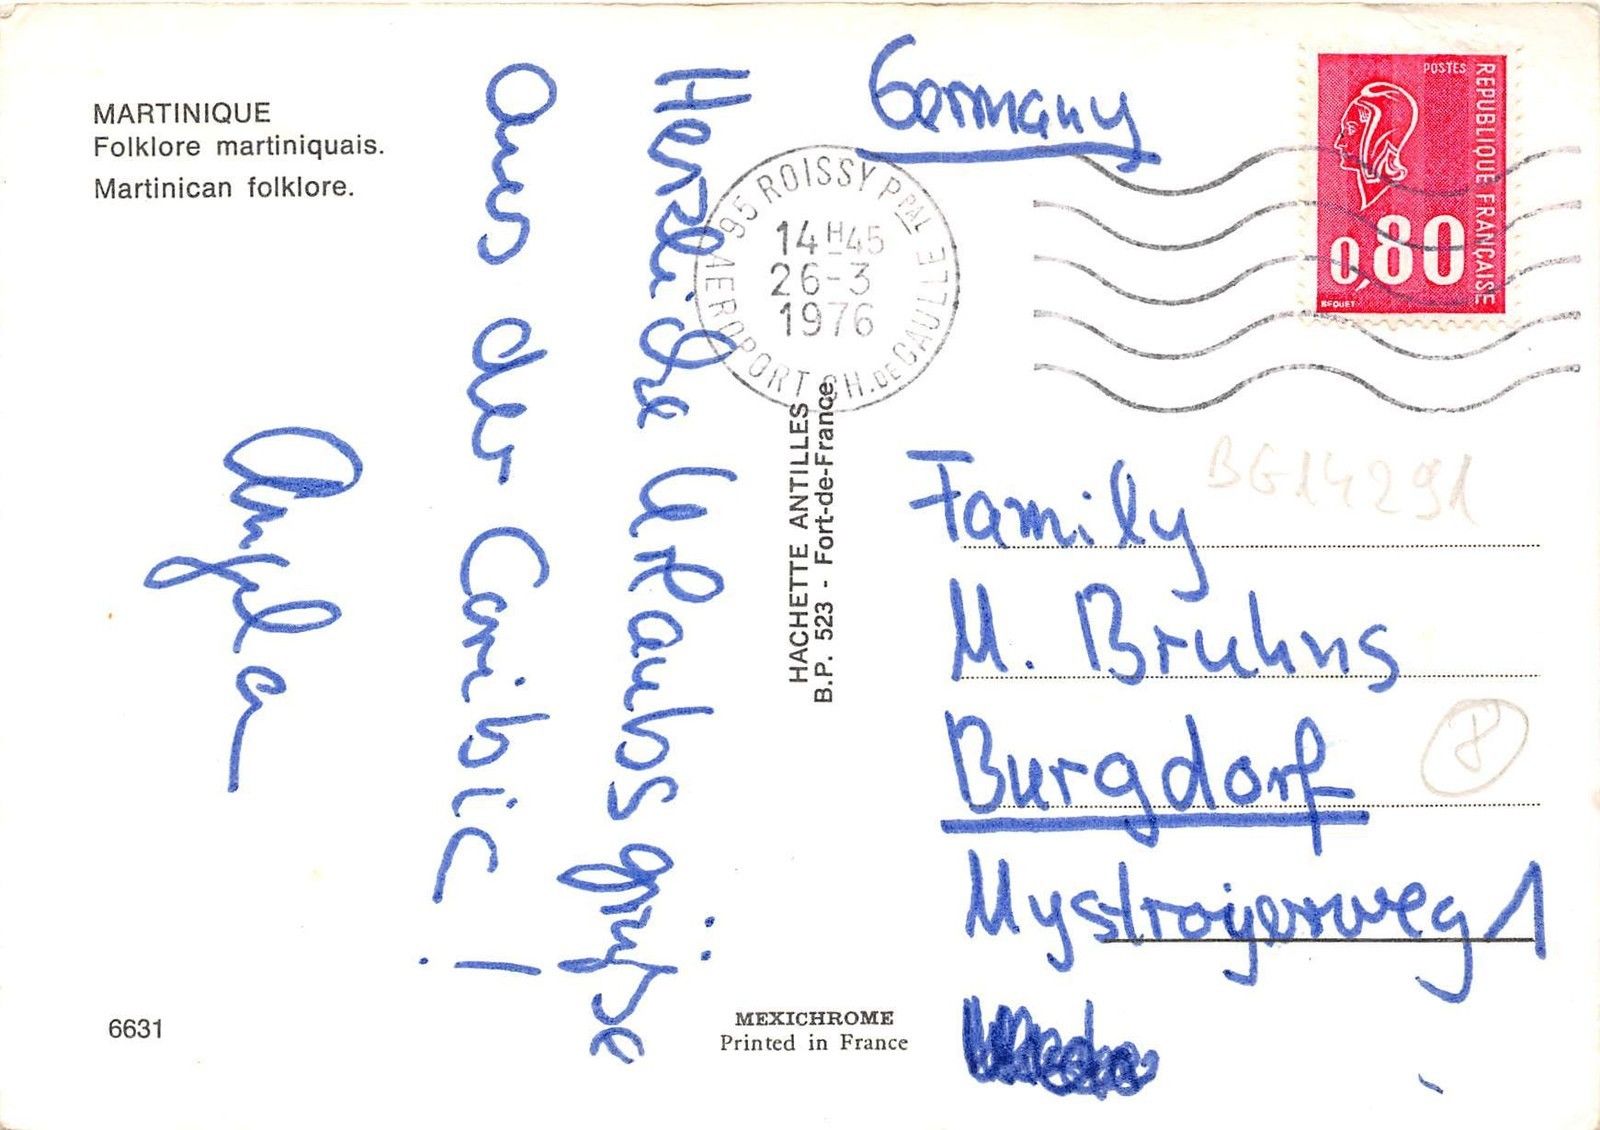 MARTINIQUE
Folklore martiniquais.
Martinican folklore.
Herzliche Urlaubsgrüße
aus der Caribic!
Angela
6631
HACHETTE ANTILLES
B.P. 523 - Fort-de-France
MEXICHROME
Printed in France
95 ROISSY PPAL
AEROPORT CH. DE GAULLE
14H45
26-3
1976
POSTES
REPUBLIQUE FRANÇAISE
0,80
BEQUET
Germany
BG14291
Family
M. Bruhns
Burgdorf
8
Mystroyerweg 1